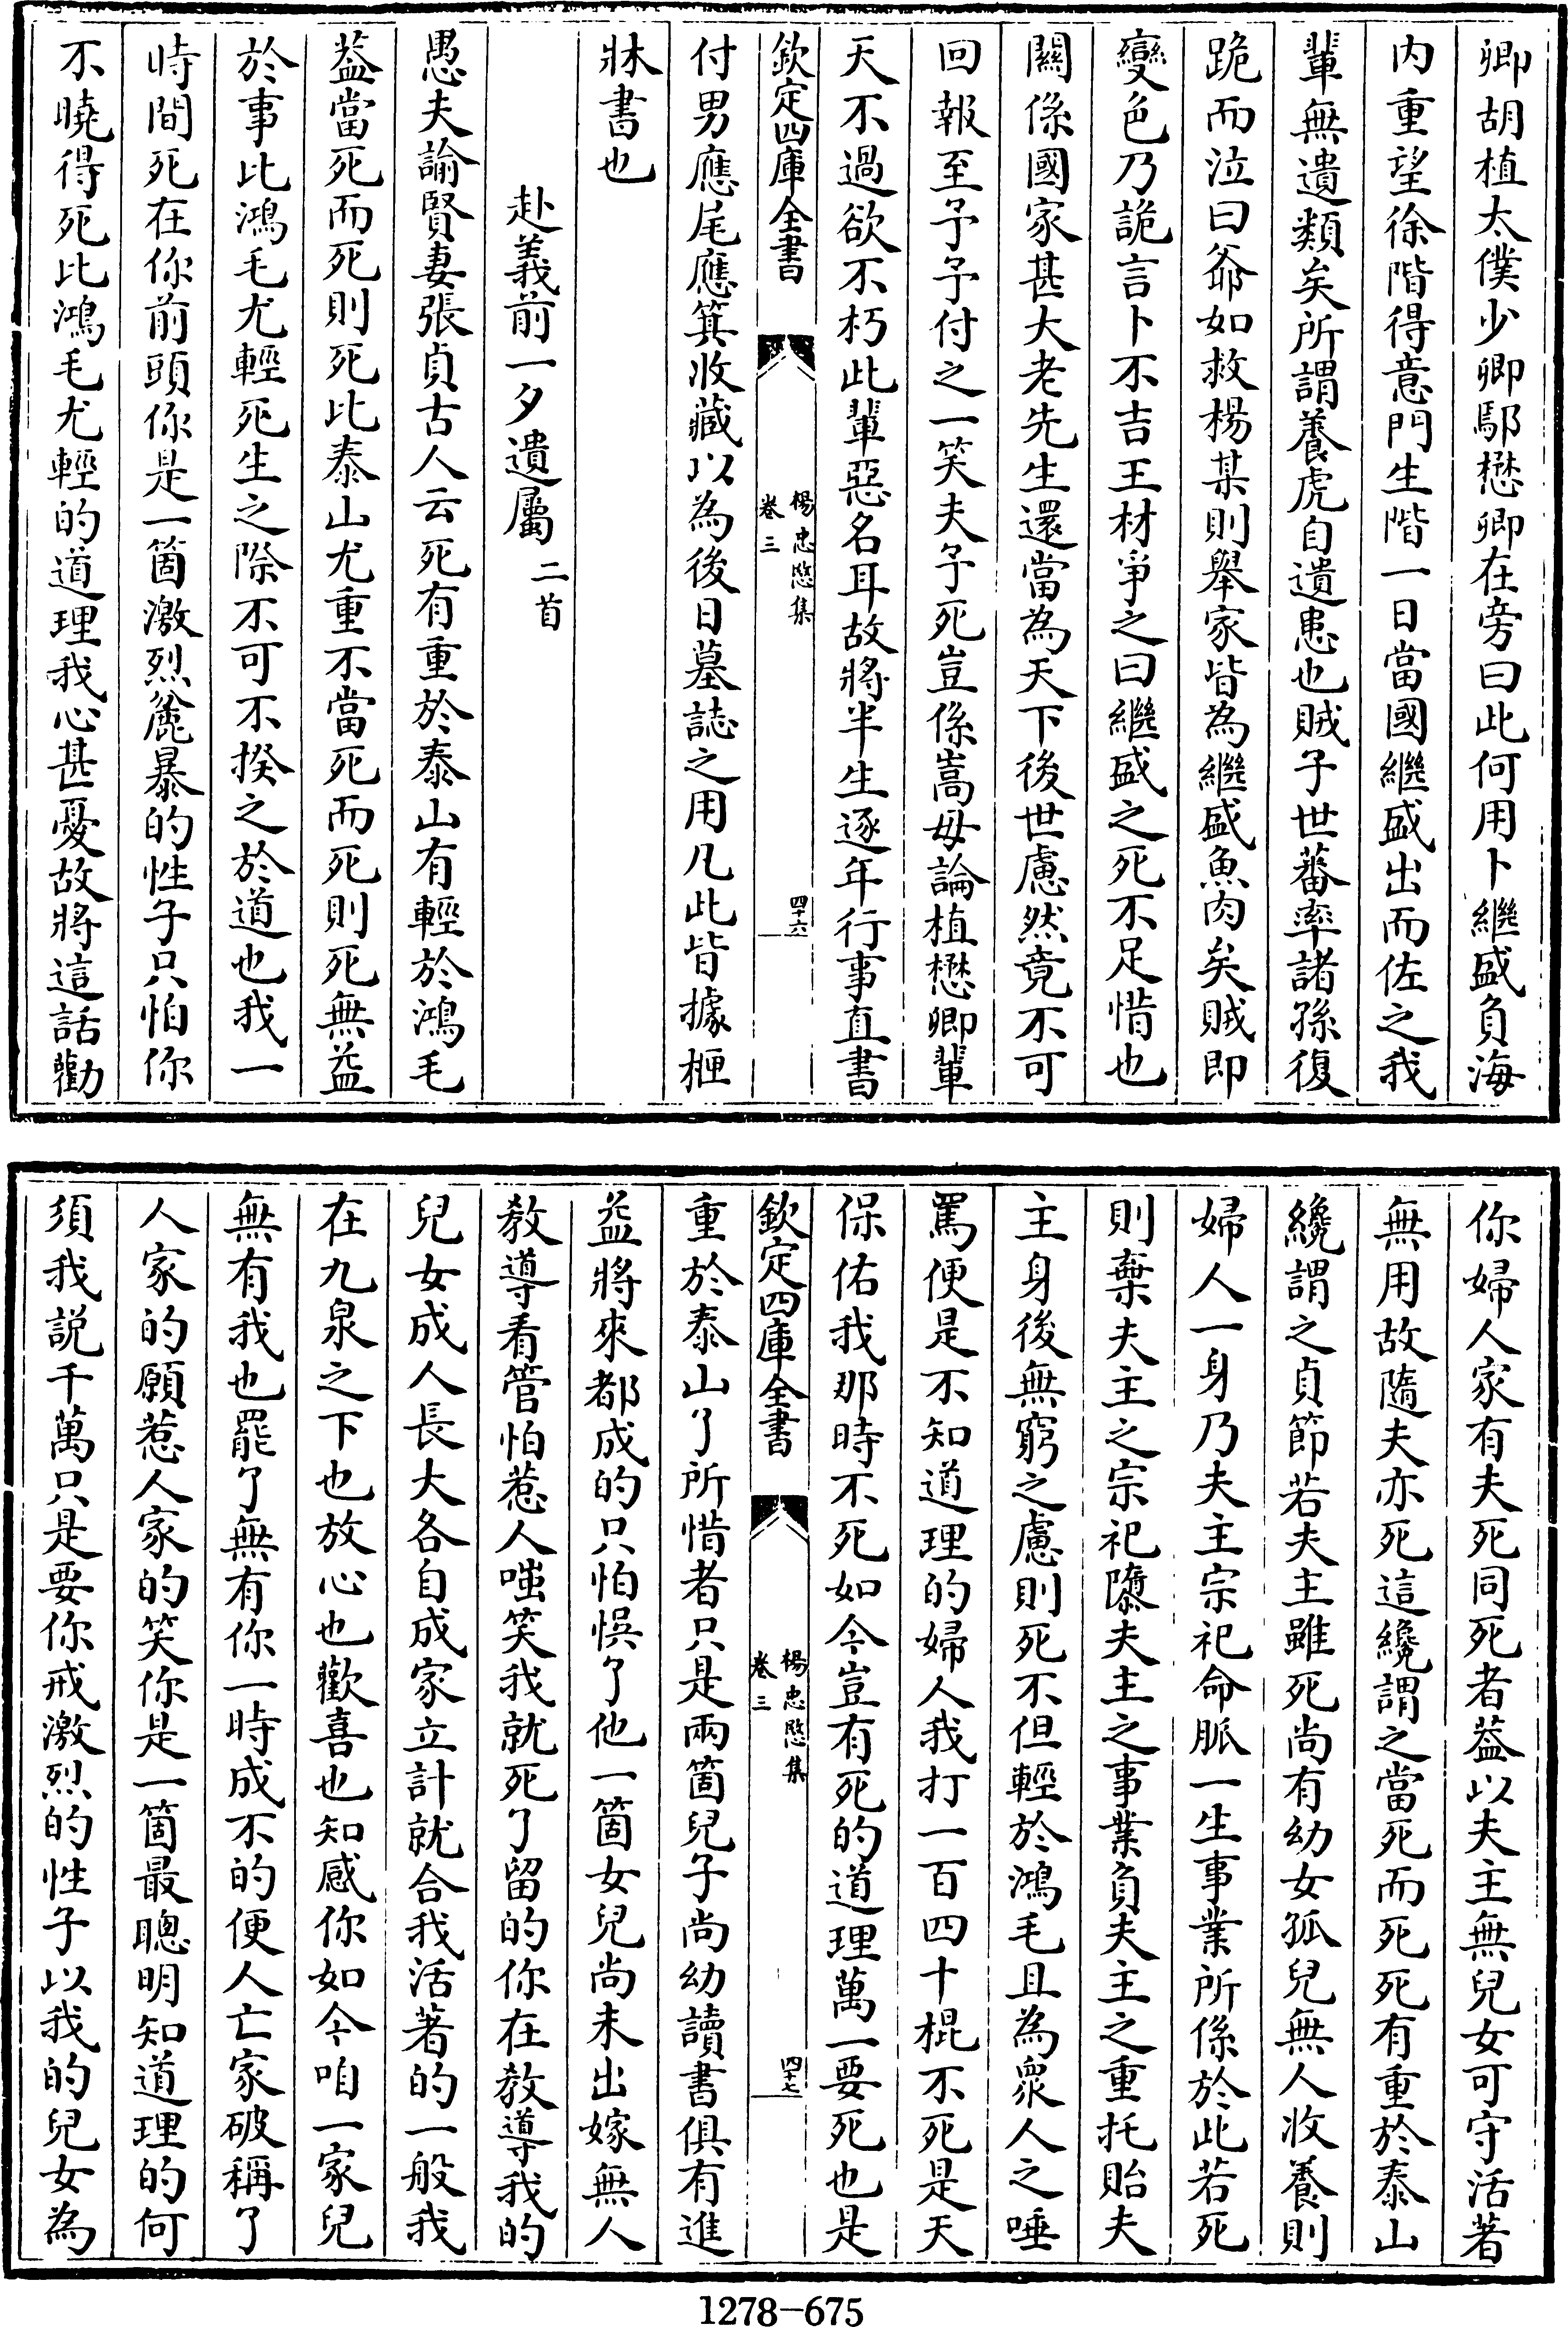 卿胡植太僕少卿鄢懋卿在旁曰此何用卜繼盛負海
内重望徐階得意門生階一日當國繼盛出而佐之我
輩無遺類矣所謂養虎自遺患也賊子世蕃率諸孫復
跪而泣曰爺如救楊某則舉家皆為繼盛魚肉矣賊即
變色乃詭言卜不吉王材爭之曰繼盛之死不足惜也
關係國家甚大老先生還當為天下後世慮然竟不可
回報至予予付之一笑夫予死豈係嵩毋論植懋卿輩
天不過欲不朽此輩惡名耳故將半生逐年行事直書
欽定四庫全書
楊忠愍集
卷三
四十六
付男應尾應箕收藏以為後日墓誌之用凡此皆據柙
牀書也
赴義前一夕遺屬二首
愚夫諭賢妻張貞古人云死有重於泰山有輕於鴻毛
葢當死而死則死比泰山尤重不當死而死則死無益
於事比鴻毛尤輕死生之際不可不揆之於道也我一
時間死在你前頭你是一箇激烈麄暴的性子只怕你
不曉得死比鴻毛尤輕的道理我心甚憂故將這話勸
你婦人家有夫死同死者葢以夫主無兒女可守活著
無用故隨夫亦死這纔謂之當死而死死有重於泰山
纔謂之貞節若夫主雖死尚有幼女孤兒無人收養則
婦人一身乃夫主宗祀命脈一生事業所係於此若死
則棄夫主之宗祀隳夫主之事業負夫主之重托貽夫
主身後無窮之慮則死不但輕於鴻毛且為衆人之唾
罵便是不知道理的婦人我打一百四十棍不死是天
保佑我那時不死如今豈有死的道理萬一要死也是
欽定四庫全書
楊忠愍集
卷三
四十七
重於泰山了所惜者只是兩箇兒子尚幼讀書俱有進
益將來都成的只怕悞了他一箇女兒尚未出嫁無人
教導看管怕惹人嗤笑我就死了留的你在教導我的
兒女成人長大各自成家立計就合我活著的一般我
在九泉之下也放心也歡喜也知感你如今咱一家兒
無有我也罷了無有你一時成不的便人亡家破稱了
人家的願惹人家的笑你是一箇最聰明知道理的何
須我説千萬只是要你戒激烈的性子以我的兒女為
1278-675